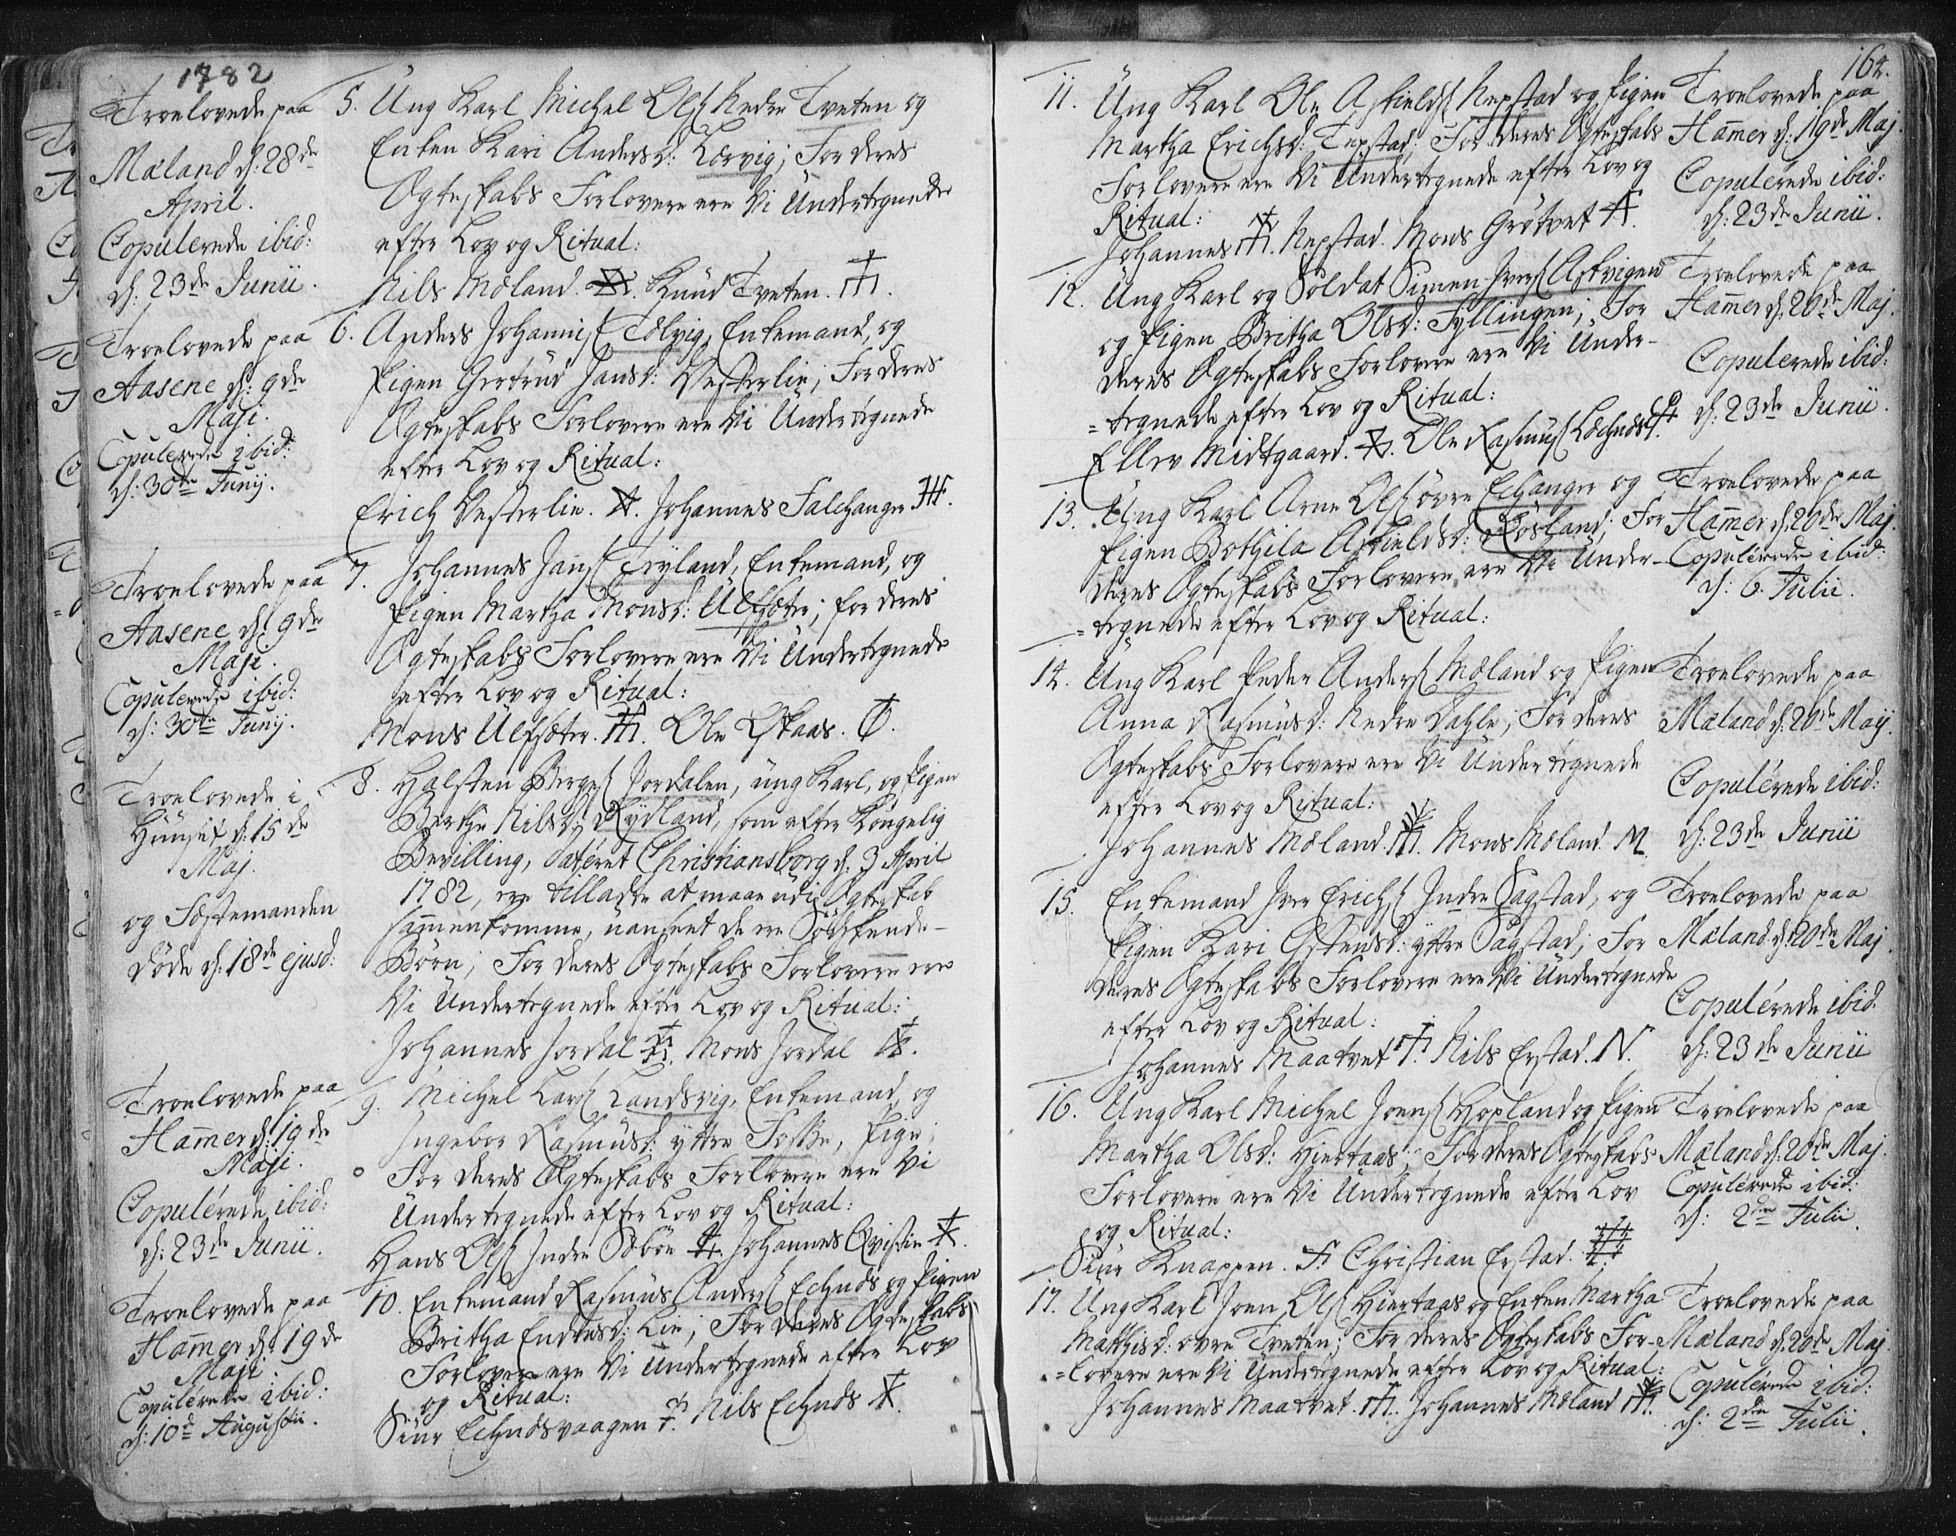 1782
Troelovede paa
Mæland d: 28de
April.
Copulerede ibid:
d: 23de Junii.
5. Ung Karl Michel Ols Nedre Tveten og
Enken Kari Andersd: Lervig; For deres
Ægteskabs Forlovere ere Vi Undertegnede
efter Lov og Ritual:
Nils Mæland. Knud Tveten.
Troelovede paa
Aasene d: 9de
Maji.
Copulerede ibid:
d: 30te Junij.
6. Anders Johannis Tælvig, Enkemand, og
Pigen Gertrud Jansd: Vesterlie; For deres
Ægteskabs Forlovere ere Vi Undertegnede
efter Lov og Ritual:
Erich Vesterlie. Johannes Falchanger
Troelovede paa
Aasene d: 9de
Maji.
Copulerede ibid:
d: 30te Junij.
7. Johannes Jans Fryland, Enkemand, og
Pigen Martha Monsd: Ulfsæter; for deres
Ægteskabs Forlovere ere Vi Undertegnede
efter Lov og Ritual:
Mons Ulfsæter. Ole Øskaas.
Troelovede i
Huuset d: 15de
Maj.
og Fæstemanden
døde d: 18de ejusd:
8. Halsten Berges Jordalen, ung Karl, og Pigen
Berthe Nilsd: Rydland, som efter Kongelig
Bevilling, dateret Christiansborg d: 3 April
1782, ere tilladte at maae udi Ægteskab
sammenkomme, uanseet de ere Södskende-
Börn; For deres Ægteskabs Forlovere ere
Vi Undertegnede efter Lov og Ritual:
Johannes Jordal Mons Jordal
Troelovede paa
Hamer d: 19de
Maji.
Copulérede ibid:
d: 23de Junii.
9. Michel Lars Landsvig, Enkemand, og
Ingebor Rasmusd: yttre Fosse, Pige;
For deres Ægteskabs Forlovere ere Vi
Undertegnede efter Lov og Ritual:
Hans Ols Indre Sæböe Johannes Qvistie
Troelovede paa
Hamer d: 19de
Maji
Copulérede ibid:
d: 10d Augustii.
10. Enkemand Rasmus Anders Echnæs og Pigen
Britha Endresd: Lie; For deres Ægteskabs
Forlovere ere Vi Undertegnede efter Lov
og Ritual:
Siur Echnæsvaagen Nils Echnæs
164.
11. Ung Karl Ole Askields Nepstad og Pigen
Martha Erichsd: Tepstad; For deres Ægteskabs
Forlovere ere Vi Undertegnede efter Lov og
Ritual:
Johannes Nepstad. Mons Grötvet
Troelovede paa
Hamer d: 19de Maj.
Copulerede ibid:
d: 23de Junii.
12. Ung Karl og Soldat Simen Ivers Askvigen
og Pigen Britha Olsd: Fyllingen; For
deres Ægteskabs Forlovere ere Vi Under-
=tegnede efter Lov og Ritual:
Ellev Midtgaard. Ole Rasmus
Troelovede paa
Hamer d: 20de Maj.
Copulerede ibid:
d: 23de Junii.
13. Ung Karl Arne Ols övre Echanger og
Pigen Bothila Askieldsd: Rösland; For
deres Ægteskabs Forlovere ere Vi Under-
=tegnede efter Lov og Ritual:
Troelovede paa
Hamer d: 20de Maj.
Copulérede ibid:
d: 6. Julii.
14. Ung Karl Peder Anders Mæland og Pigen
Anna Rasmusd: Nedre Dahle; For deres
Ægteskabs Forlovere ere Vi Undertegnede
efter Lov og Ritual:
Johannes Mæland. Mons Mæland. M.
Troelovede paa
Mæland d: 20de Maij.
Copulérede ibid:
d: 23de Junii
15. Enkemand Iver Erichs Indre Sagstad, og
Pigen Kari Østensd: yttre Sagstad; For
deres Ægteskabs Forlovere ere Vi Undertegnede
efter Lov og Ritual:
Johannes Maatvet Nils Erstad. N.
Troelovede paa
Mæland d: 20de Maj.
Copulérede ibid:
d: 23de Junii
16. Ung Karl Michel Joens Hopland og Pigen
Martha Olsd: Hiertaas; For deres Ægteskabs
Forlovere ere Vi Undertegnede efter Lov
og Ritual:
Siur Knappen. Christian Erstad.
Troelovede paa
Mæland d: 20de Maj.
Copulérede ibid:
d: 2den Julii.
17. Ung Karl Joen Ols Hiertaas og Enken Martha
Mathisd: övre Tveten; For deres Ægteskabs For-
=lovere ere Vi Undertegnede efter Lov og Ritual:
Johannes Maatvet. Johannes Mæland
Troelovede paa
Mæland d: 20de Maj.
Copulérede ibid:
d: 2den Julii.